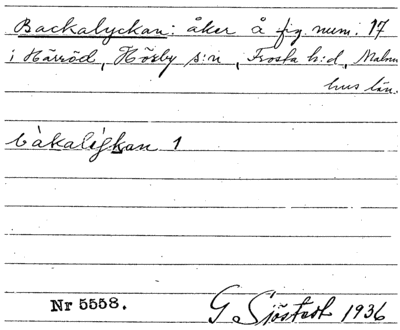 Backalyckan: åker å fig. num. 17
i Härröd, Hörby s:n, Frosta h:d, Malmö-
hus län.
bàkalýkan 1
Nr 5558.
G Sjöstedt 1936